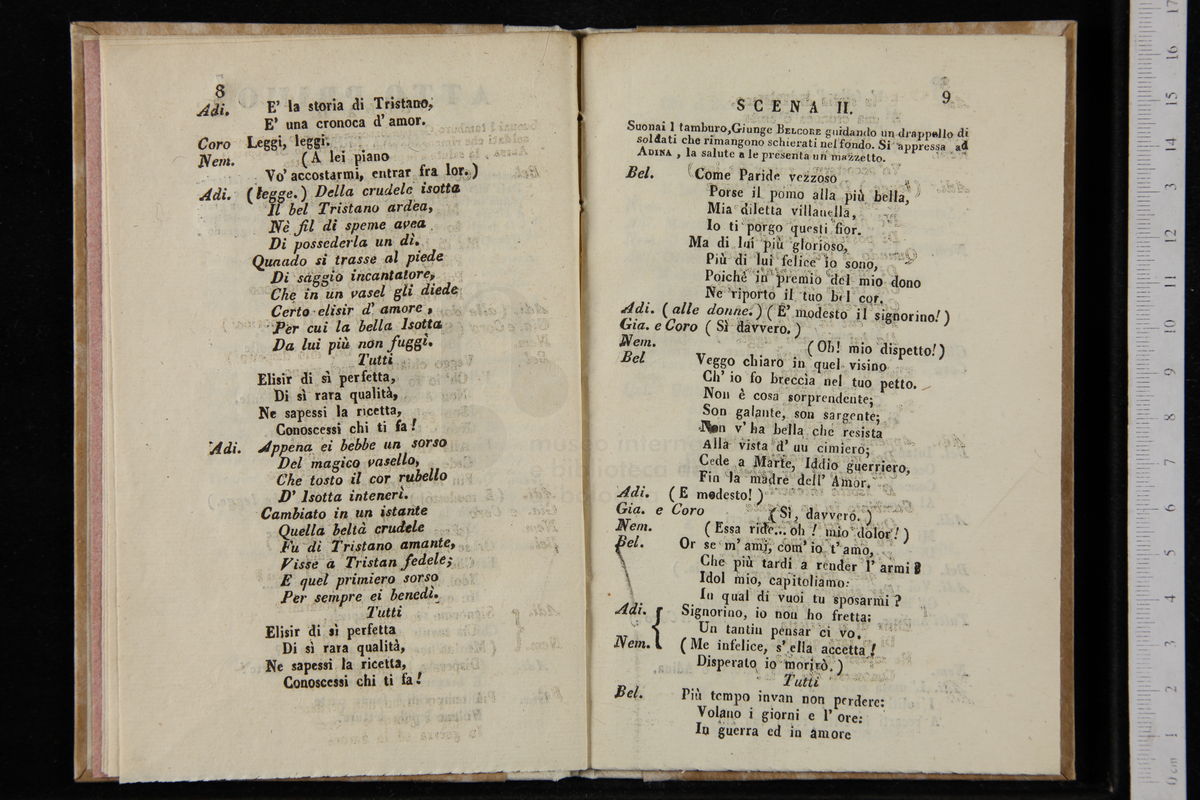 8
Adi. E' la storia di Tristano,
E' una cronoca d' amor.
Coro Leggi, leggi.
Nem. (A lei piano
Vo' accostarmi, entrar fra lor.)
Adi. (legge.) Della crudele isotta
Il bel Tristano ardea,
Nè fil di speme avea
Di possederla un dì.
Qunado si trasse al piede
Di saggio incantatore,
Che in un vasel gli diede
Certo elisir d' amore ,
Per cui la bella Isotta
Da lui più non fuggì.
Tutti
Elisir di sì perfetta,
Di sì rara qualità,
Ne sapessi la ricetta,
Conoscessi chi ti fa!
Adi. Appena ei bebbe un sorso
Del magico vasello,
Che tosto il cor rubello
D' Isotta intenerì.
Cambiato in un istante
Quella beltà crudele
Fu di Tristano amante,
Visse a Tristan fedele;
E quel primiero sorso
Per sempre ei benedì.
Tutti
Elisir di sì perfetta
Di sì rara qualità,
Ne sapessi la ricetta,
Conoscessi chi ti fa!
9
SCENA II.
Suonai l tamburo,Giunge BELCORE guidando un drappello di
soldati che rimangono schierati nel fondo. Si appressa ad
ADINA , la salute a le presenta un mazzetto.
Bel. Come Paride vezzoso
Porse il pomo alla più bella,
Mia diletta villanella,
Io ti porgo questi fior.
Ma di lui più glorioso,
Più di lui felice io sono,
Poichè in premio del mio dono
Ne riporto il tuo bel cor.
Adi. (alle donne.) (E' modesto il signorino!)
Gia. e Coro (Sì davvero.)
Nem. (Oh! mio dispetto!)
Bel Veggo chiaro in quel visino
Ch' io fo breccia nel tuo petto.
Non è cosa sorprendente;
Son galante, son sargente;
Non v' ha bella che resista
Alla vista d' un cimiero;
Cede a Marte, Iddio guerriero,
Fin la madre dell' Amor.
Adi. (E modesto!)
Gia. e Coro (Sì, davvero.)
Nem. (Essa ride... oh ! mio dolor!)
Bel. Or se m' ami, com' io t' amo,
Che più tardi a render l' armi?
Idol mio, capitoliamo:
In qual di vuoi tu sposarmi ?
Adi. Signorino, io non ho fretta:
Un tantin pensar ci vo.
Nem. (Me infelice, s' ella accetta!
Disperato io morirò.)
Tutti
Bel. Più tempo invan non perdere:
Volano i giorni e l' ore:
In guerra ed in amore